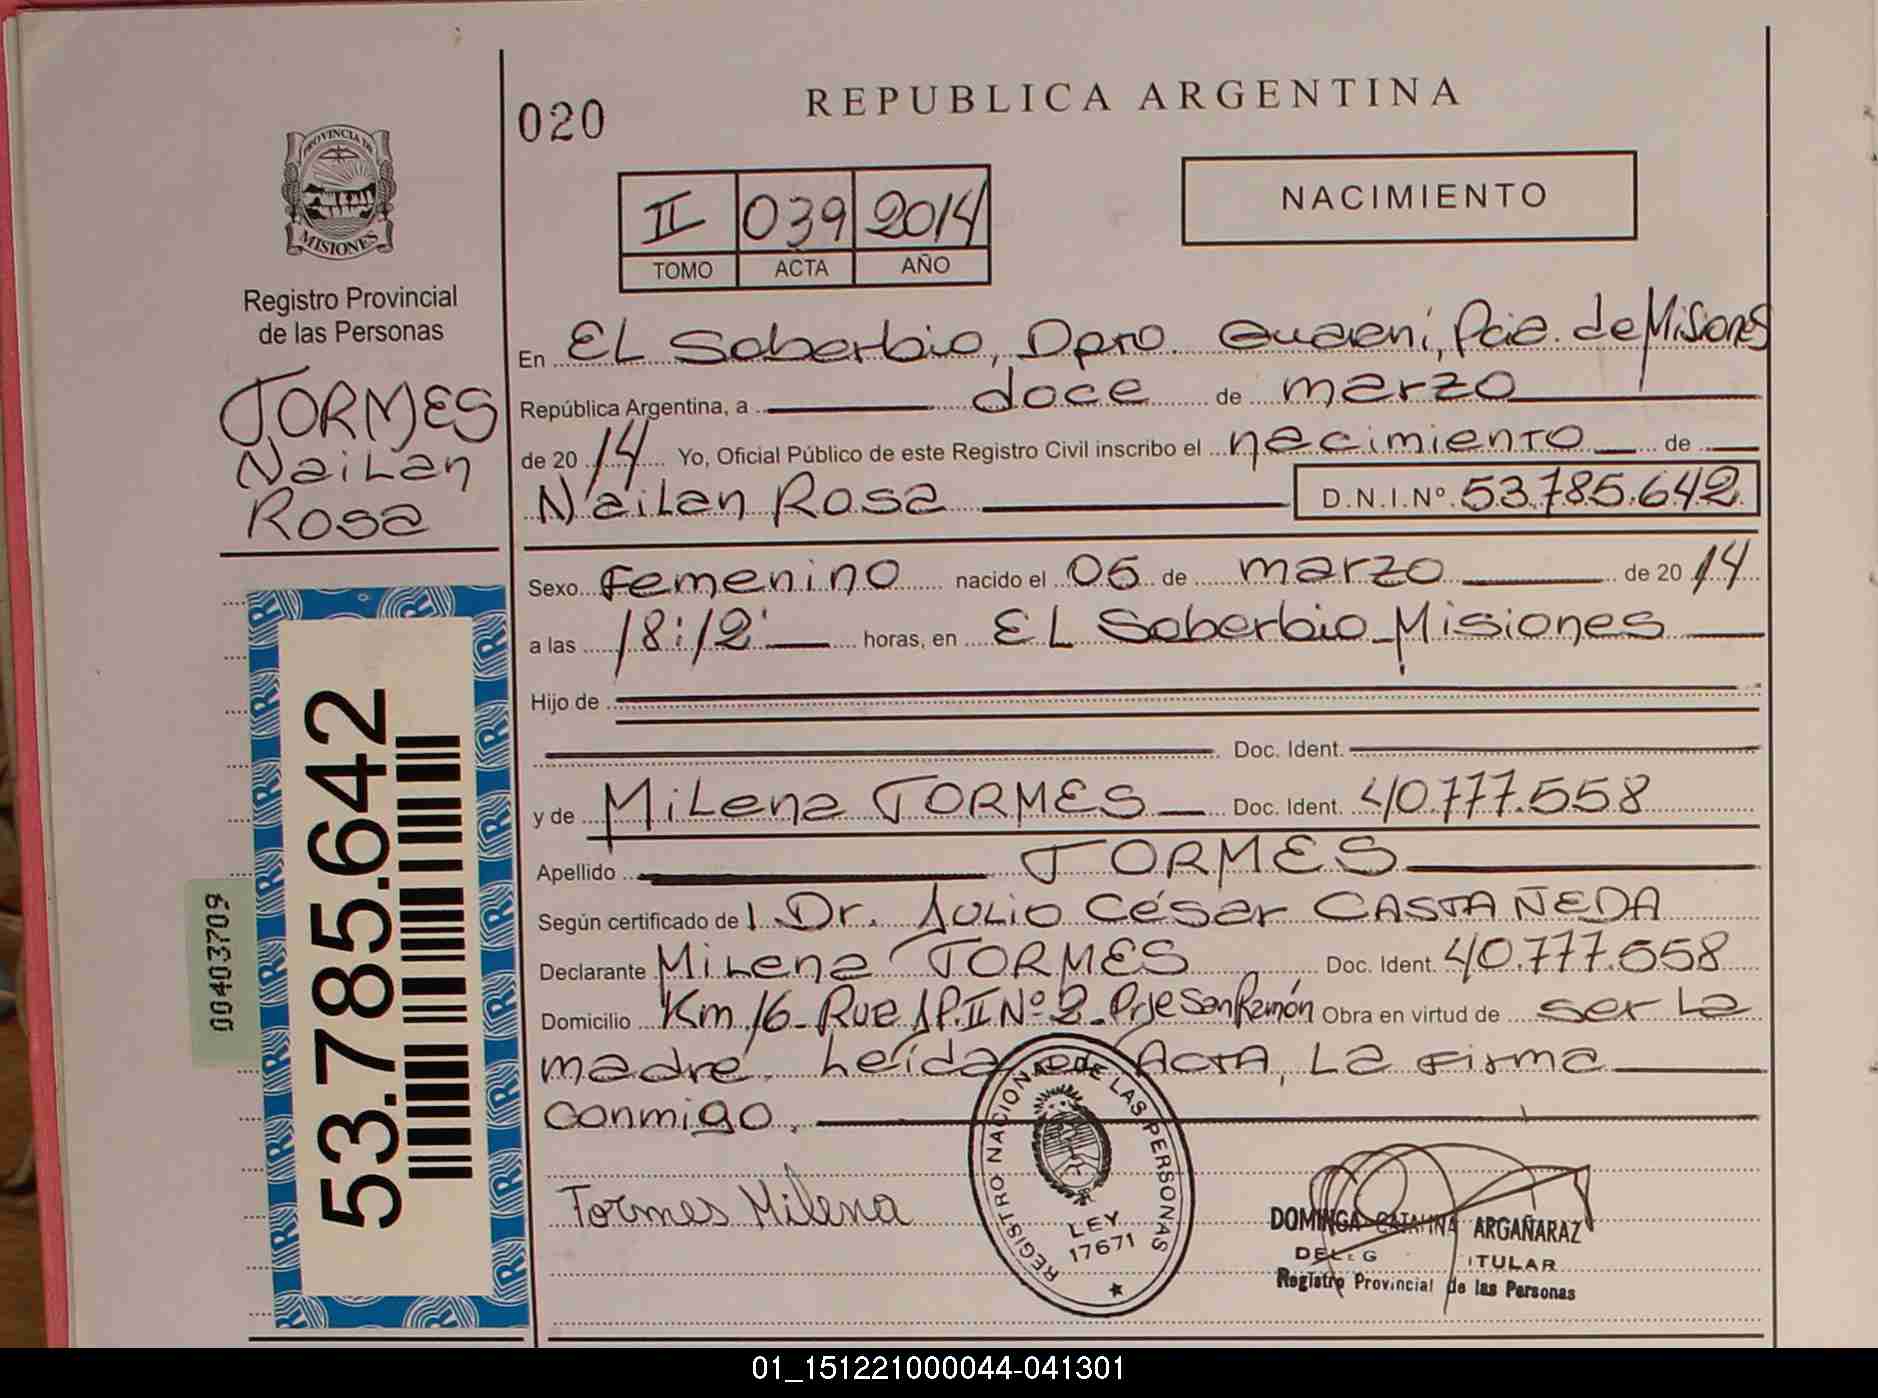 020
REPUBLICA ARGENTINA
PROVINCIA DE
MISIONES
Registro Provincial
de las Personas
TORMES
Nailan
Rosa
II 039 2014
TOMO ACTA AÑO
NACIMIENTO
En EL Soberbio, Dpto. Guaraní, Pcia. de Misiones
República Argentina, a doce de marzo
de 2014 Yo, Oficial Público de este Registro Civil inscribo el nacimiento de
Nailan Rosa D.N.I.Nº 53.785.642
Sexo femenino nacido el 06 de marzo de 2014
a las 18:12' horas, en EL Soberbio_Misiones
Hijo de
Doc. Ident.
y de Milena TORMES Doc. Ident. 40.777.558
Apellido TORMES
Según certificado de Dr. Julio César CASTAÑEDA
Declarante Milena TORMES Doc. Ident. 40.777.558
Domicilio Km 16_ Rue 1P.II Nº 2_Prje San Ramón Obra en virtud de ser la
madre. Leída el Acta, La firma
conmigo.
Tormes Milena
REGISTRO NACIONAL DE LAS PERSONAS
LEY
17671
DOMINGA CATALINA ARGAÑARAZ
Registro Provincial de las Personas
53.785.642
00403709
01_151221000044-041301